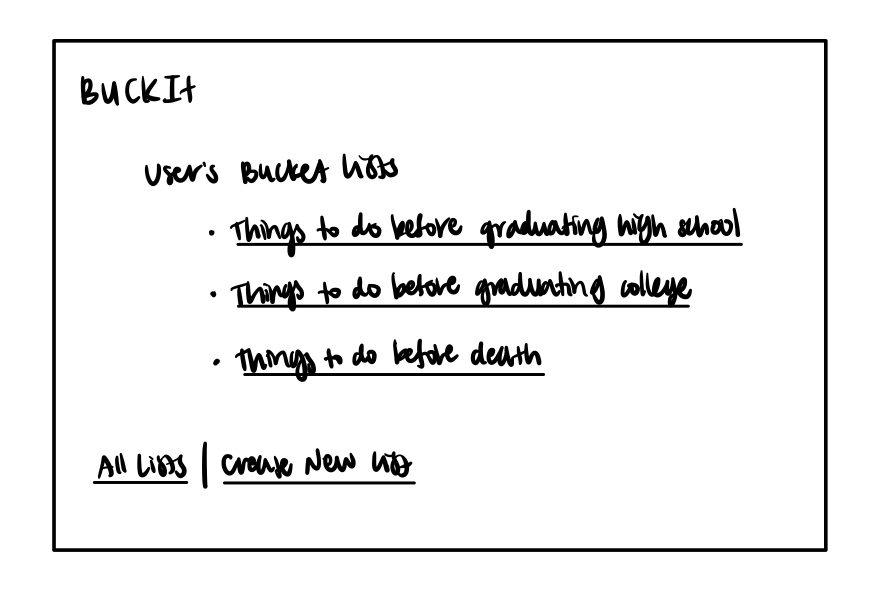 BUCKIt
User's Bucket Lists
• Things to do before graduating high school
• Things to do before graduating college
• Things to do before death
All Lists | Create New List